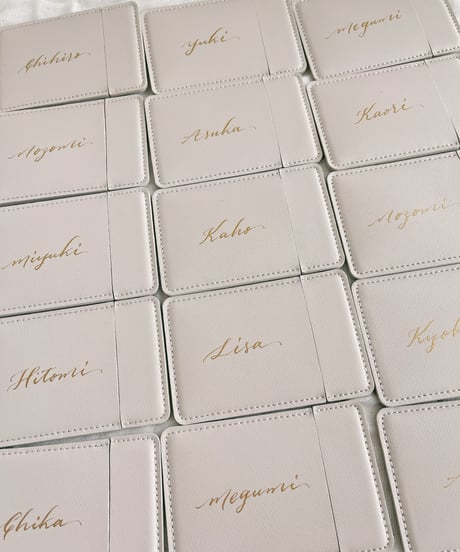 Chihiro
yuki
megumi
Nozomi
Asuka
Kaori
miyuki
Kaho
Nozomi
Hitomi
Lisa
Chika
megumi